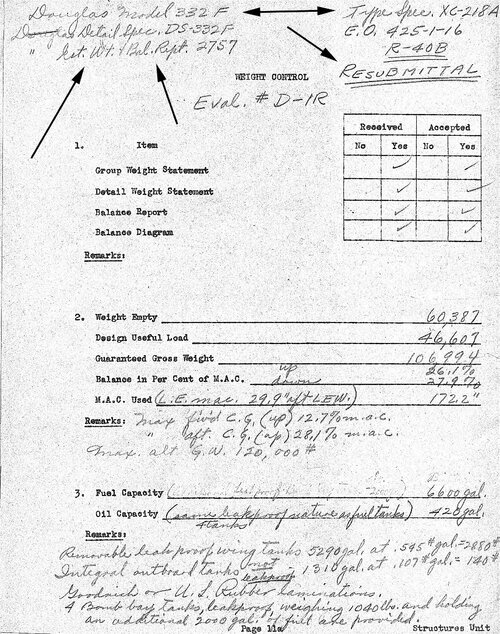 Douglas Model 332 F Type Spec. XC-218A
Douglas Detail Spec. DS-332F E.O. 425-1-16
" Est. Wt. & Bal. Rept. 2757 R-40B
RESUBMITTAL
WEIGHT CONTROL
Eval. # D-1R
Received Accepted
1. Item No Yes No Yes
Group Weight Statement ✓ ✓
Detail Weight Statement ✓ ✓
Balance Report ✓ ✓
Balance Diagram ✓ ✓
Remarks:
2. Weight Empty 60,387
Design Useful Load 46,607
Guaranteed Gross Weight 106,994
Balance in Per Cent of M.A.C. up 26.1%
down 27.9%
M.A.C. Used (L.E. mac. 29.9" aft L.E.W.) 172.2"
Remarks: Max fw'd C.G. (up) 12.7% m.a.c.
" aft. C.G. (up) 28.1% m.a.c.
Max. alt G.W. 120,000#
3. Fuel Capacity ( 6600 gal.
Oil Capacity (same leakproof nature as fuel tanks) 420 gal.
4 tanks
Remarks:
Removable leakproof wing tanks 5290 gal. at .545 #/gal. = 2880#
Integral outboard tanks not leakproof 1310 gal. at .107 #/gal. = 140#
Goodrich or U.S. Rubber laminations.
4 Bomb bay tanks, leakproof, weighing 1040 lbs. and holding
an additional 2000 gal. of fuel are provided.
Page 11a Structures Unit